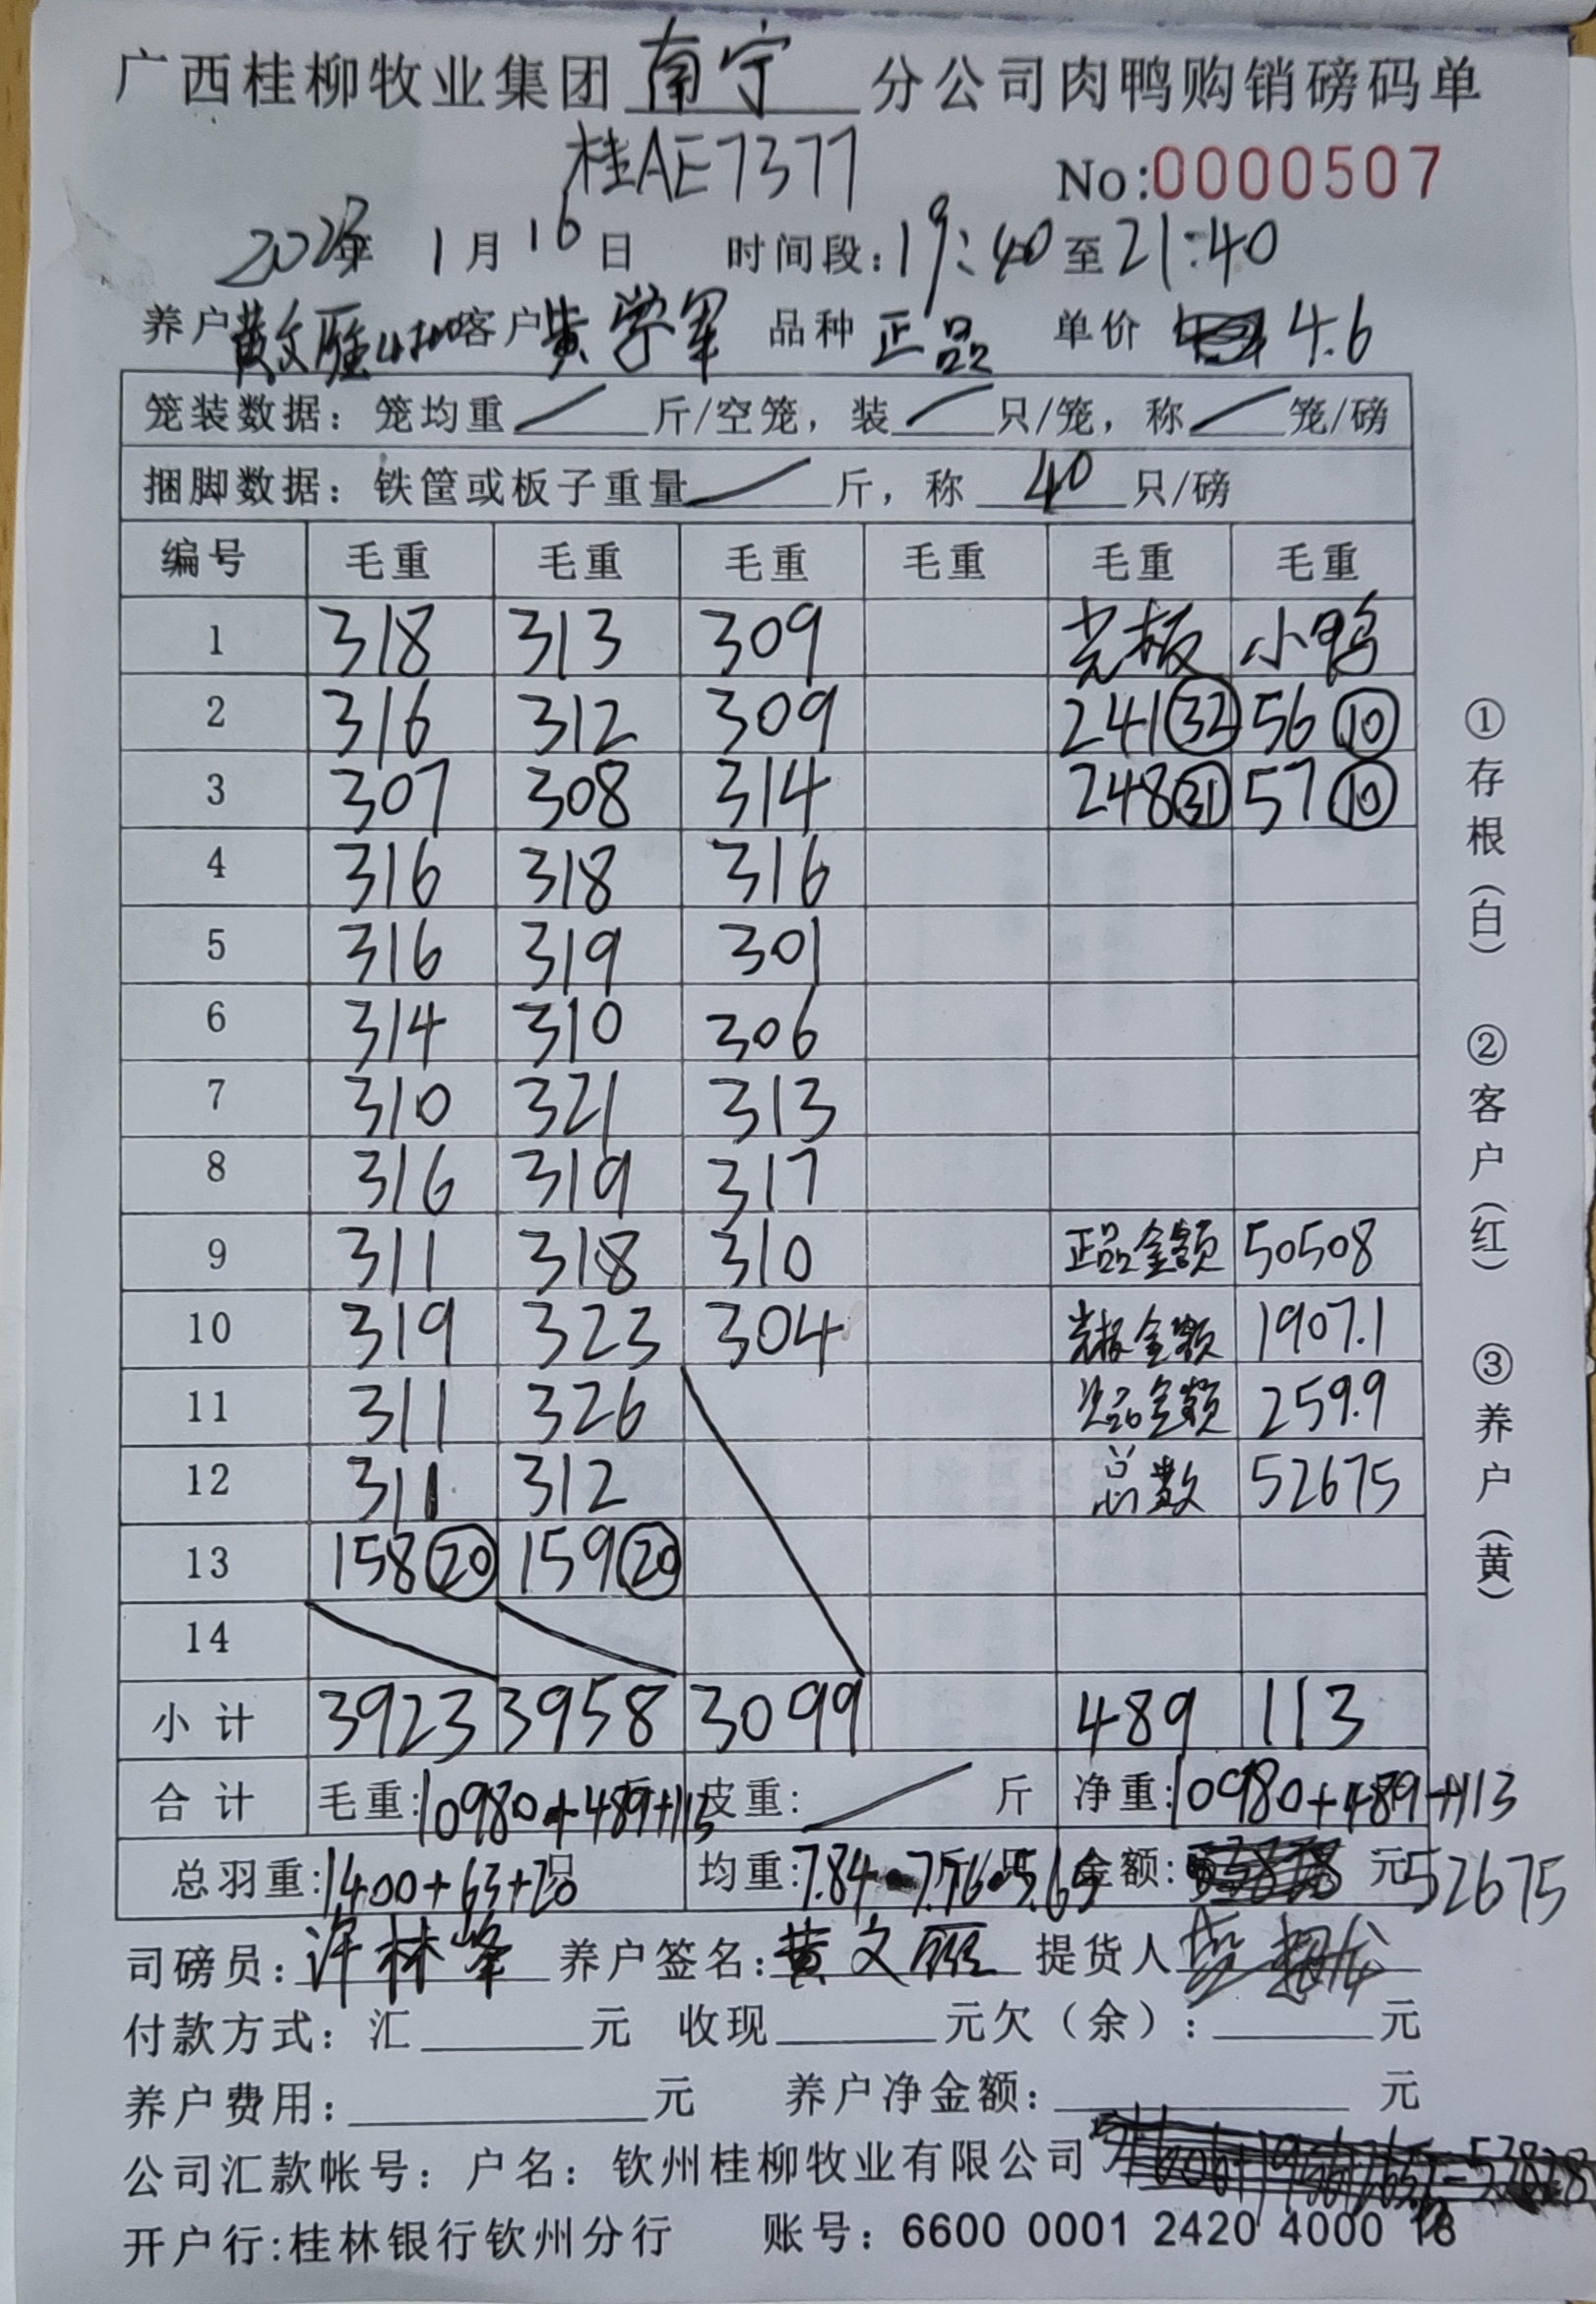 广西桂柳牧业集团南宁分公司肉鸭购销磅码单
桂AE7377
No:0000507
2023年 1月16日 时间段:19:40至21:40
养户黄文丽 客户黄学军 品种 正品 单价 4.6
笼装数据: 笼均重 / 斤/空笼, 装 / 只/笼, 称 / 笼/磅
捆脚数据: 铁筐或板子重量 / 斤, 称 40 只/磅
编号 毛重 毛重 毛重 毛重 毛重 毛重
1 318 313 309 光板 小鸭
2 316 312 309 241㉜ 56⑩
3 307 308 314 248㉛ 57⑩
4 316 318 316
5 316 319 301
6 314 310 306
7 310 321 313
8 316 319 317
9 311 318 310 正品金额 50508
10 319 323 304 光板金额 1907.1
11 311 326 次品金额 259.9
12 311 312 总数 52675
13 158⑳ 159⑳
14
小计 3923 3958 3099 489 113
合计 毛重:10980+489+113 皮重: / 斤 净重:10980+489+113
总羽重:1400+63+20只 均重:7.84 7.76 5.65 金额: 元52675
司磅员:许林峰 养户签名:黄文丽 提货人
付款方式: 汇 元 收现 元欠(余): 元
养户费用: 元 养户净金额: 元
公司汇款帐号: 户名: 钦州桂柳牧业有限公司
开户行:桂林银行钦州分行 账号: 6600 0001 2420 4000 18
①存根(白) ②客户(红) ③养户(黄)